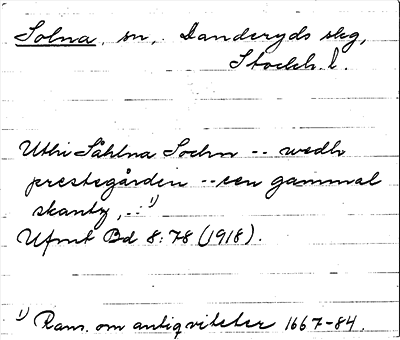 Solna, sn, Danderyds skg,
Stockh. l.
Uthi Såhlna Sochn -- wedh
prestegården -- een gammal
skantz, -- 1)
Ufmt Bd 8:78 (1918).
1) Rans. om antiqviteter 1667-84.